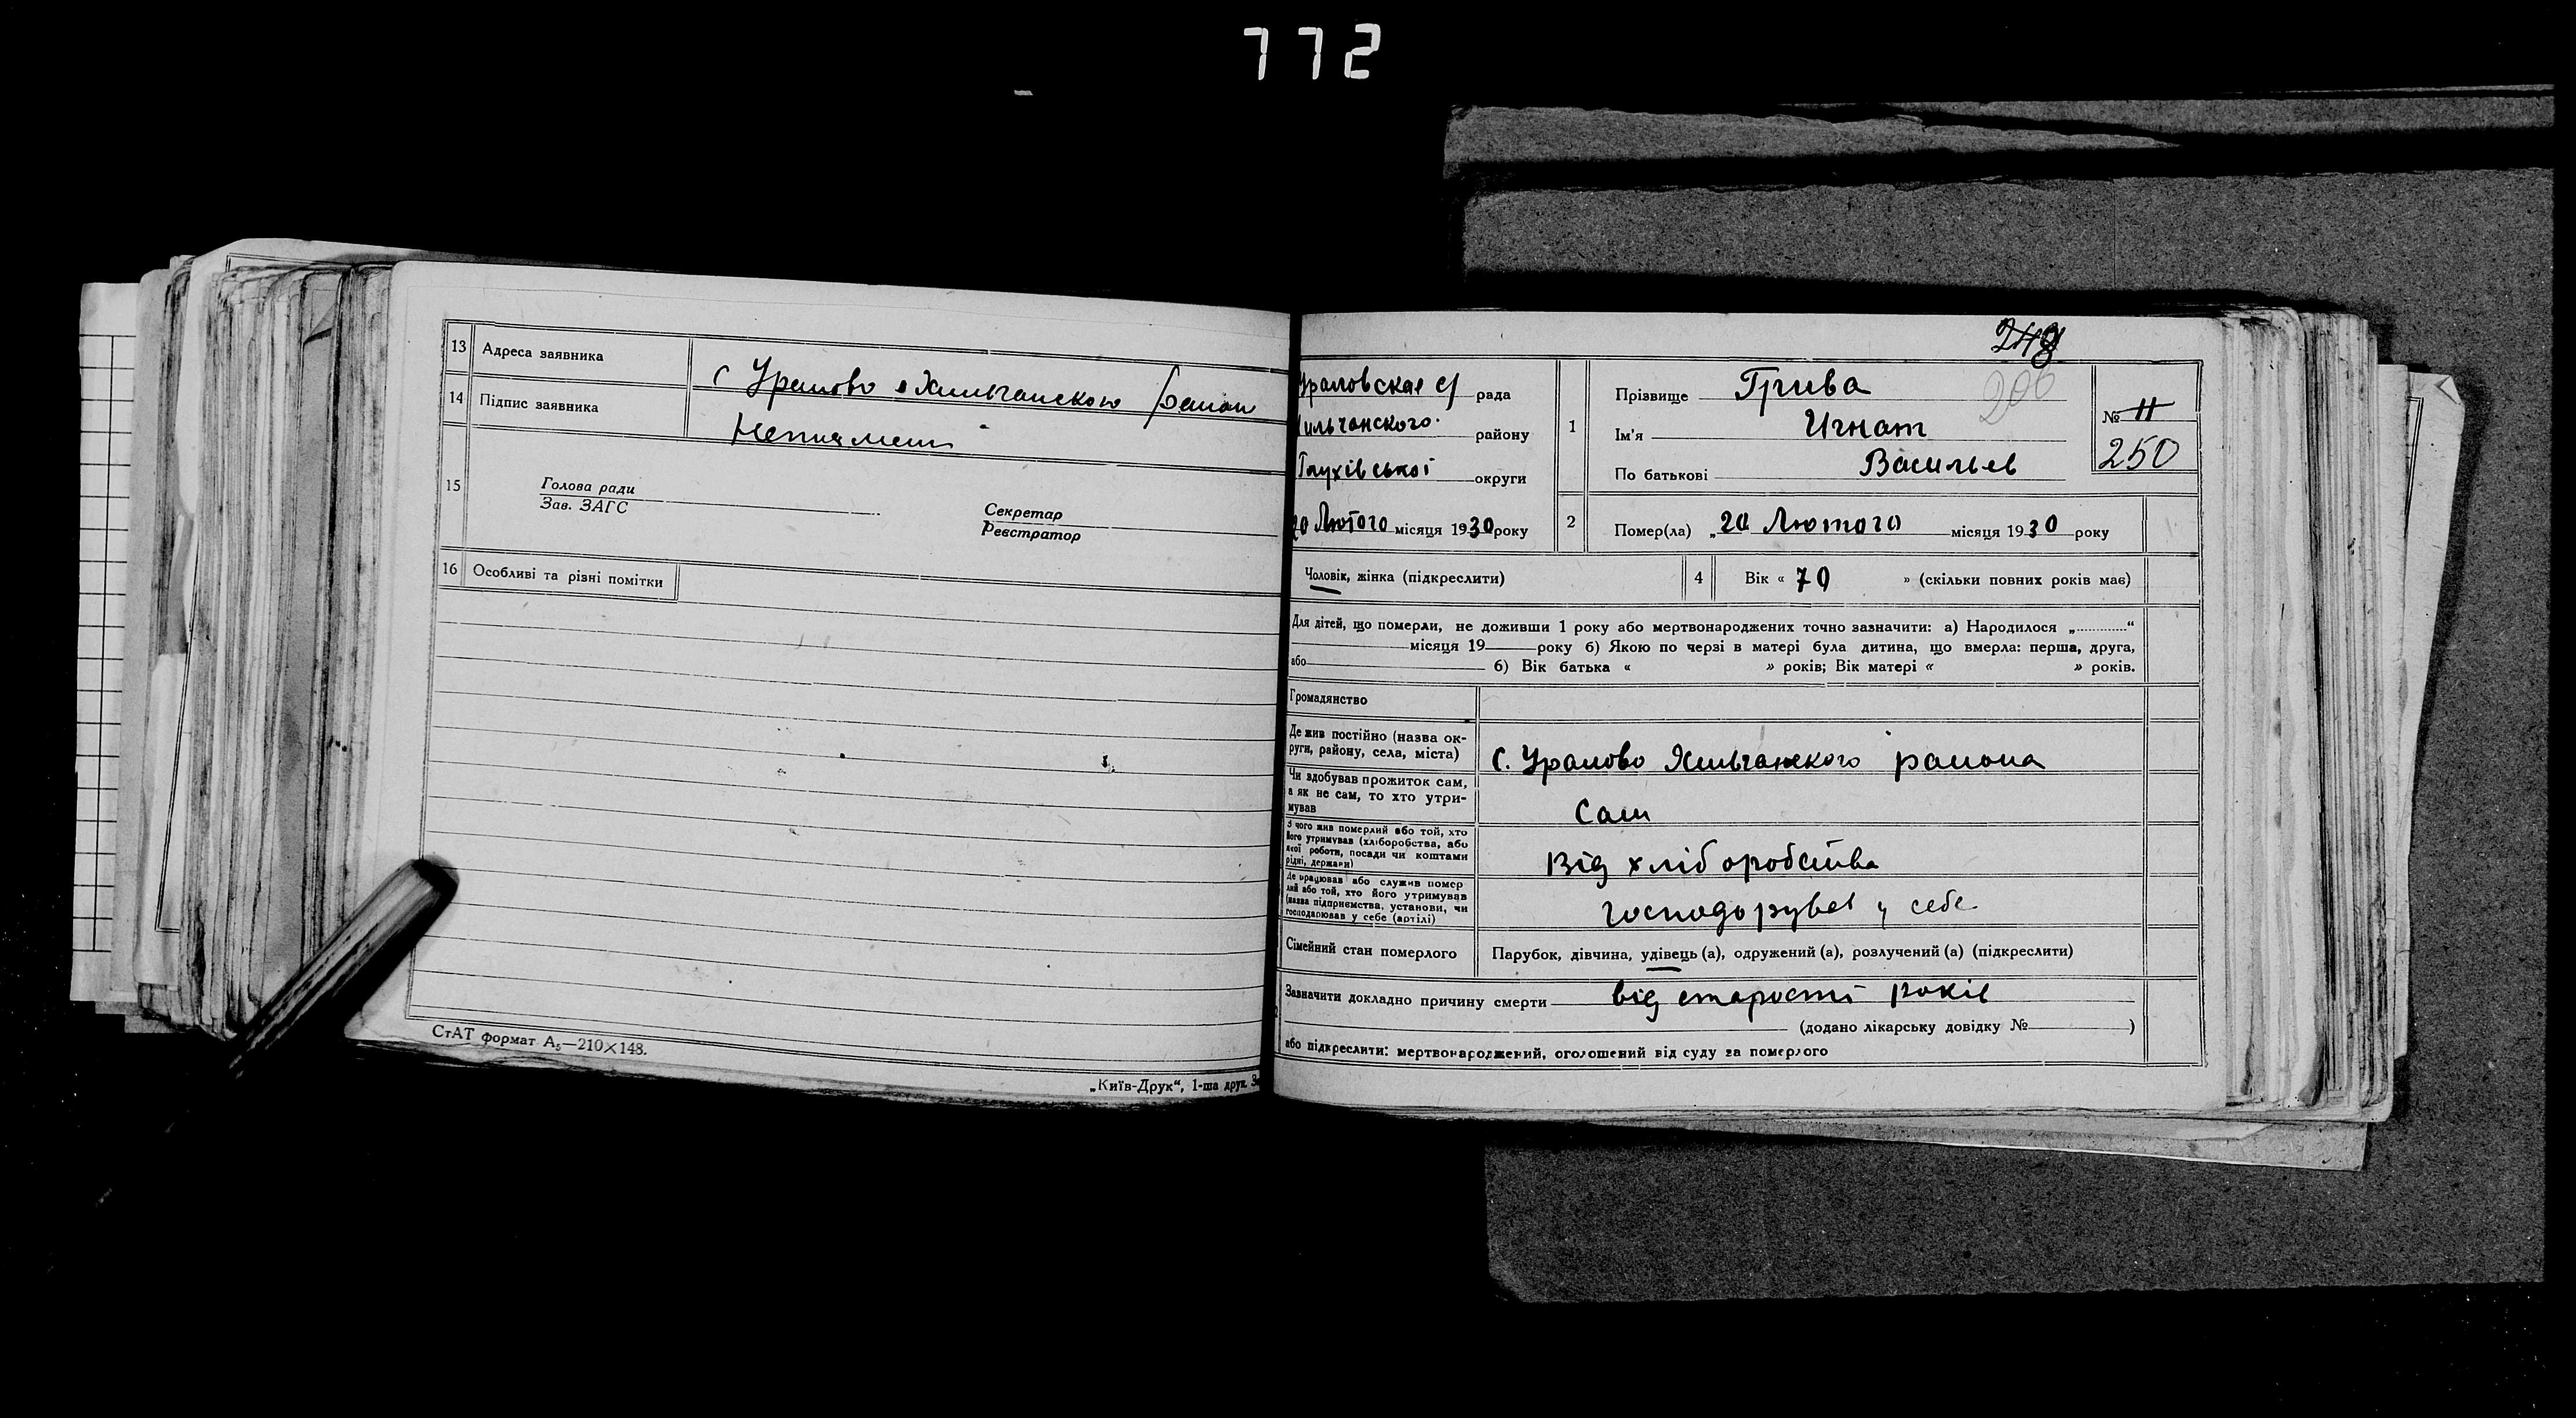 772
13 Адреса заявника с Уралово Хильчанского район
14 Підпис заявника Неписмен
15 Голова ради
Зав. ЗАГС
Секретар
Реєстратор
16 Особливі та різні помітки
СтАТ формат А₅—210×148.
„Київ-Друк“, 1-ша друк.
248
206
Ураловская с/ рада
ильчанского району
Глухівської округи
20 Лютого місяця 1930 року
1 Прізвище Грива
Ім'я Игнат
По батькові Васильев
№ 11
250
2 Помер(ла) „20 Лютого місяця 1930 року
Чоловік, жінка (підкреслити)
4 Вік « 70 » (скільки повних років має)
Для дітей, що померли, не доживши 1 року або мертвонароджених точно зазначити: а) Народилося „............“
місяця 19 року б) Якою по черзі в матері була дитина, що вмерла: перша, друга,
або б) Вік батька « » років; Вік матері « » років.
Громадянство
Де жив постійно (назва ок-
руги, району, села, міста) с. Уралово Хильчанского района
Чи здобував прожиток сам,
а як не сам, то хто утри-
мував Сам
З чого жив померлий або той, хто
його утримував (хліборобства, або
якої роботи, посади чи коштами
рідні, держави) Від хліборобства
Де працював або служив помер
лий або той, хто його утримував
(назва підприємства, установи, чи
господарював у себе (артілі) господорував у себе
Сімейний стан померлого Парубок, дівчина, удівець (а), одружений (а), розлучений (а) (підкреслити)
Зазначити докладно причину смерти від старости років
(додано лікарську довідку № )
або підкреслити: мертвонароджений, оголошений від суду за померлого